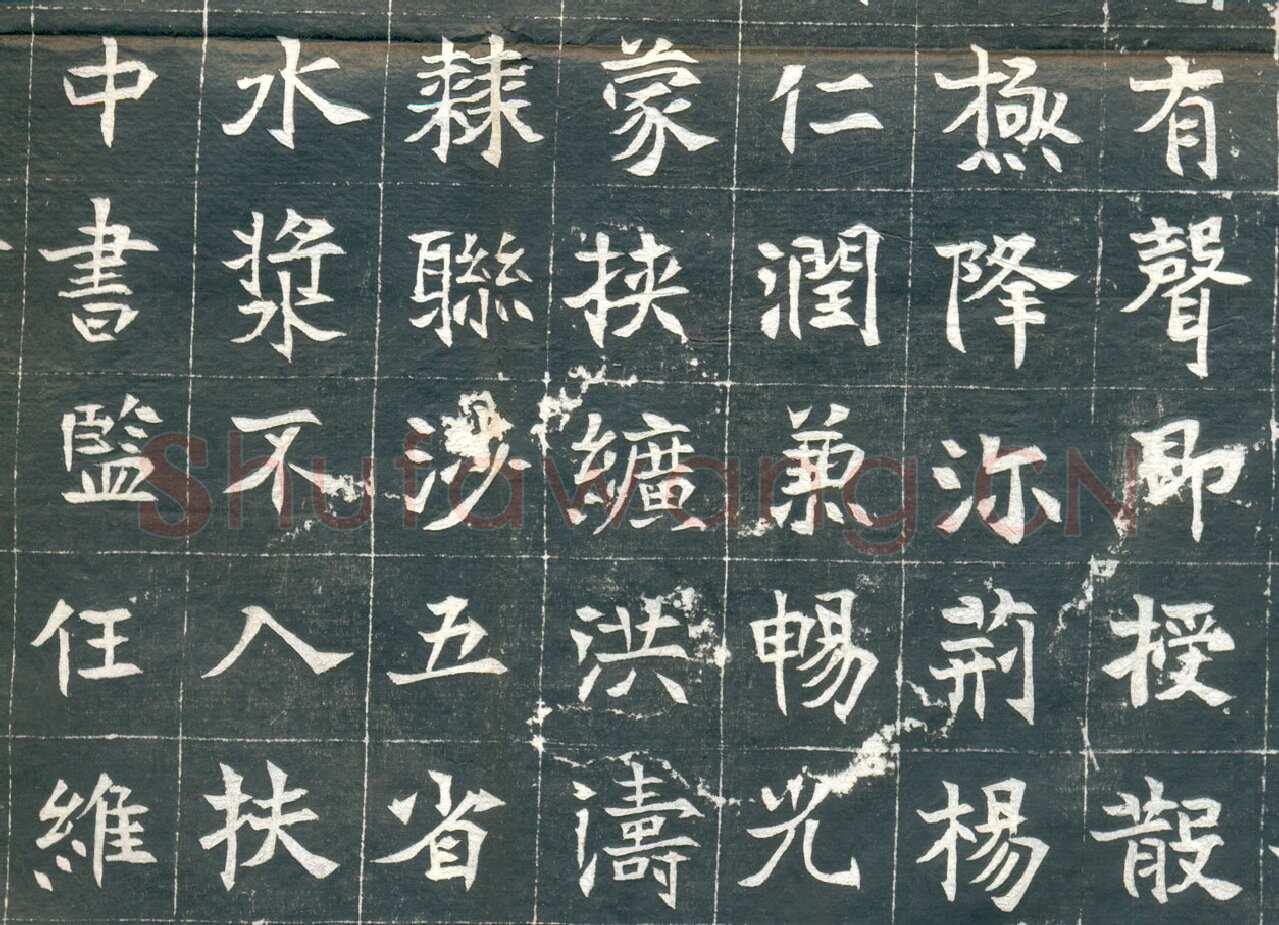 有聲即授散
極降沵荊楊
仁潤兼暢光
蒙挾纊洪濤
隸聯涉五省
水漿不入扶
中書監任維
Shufawang.CN